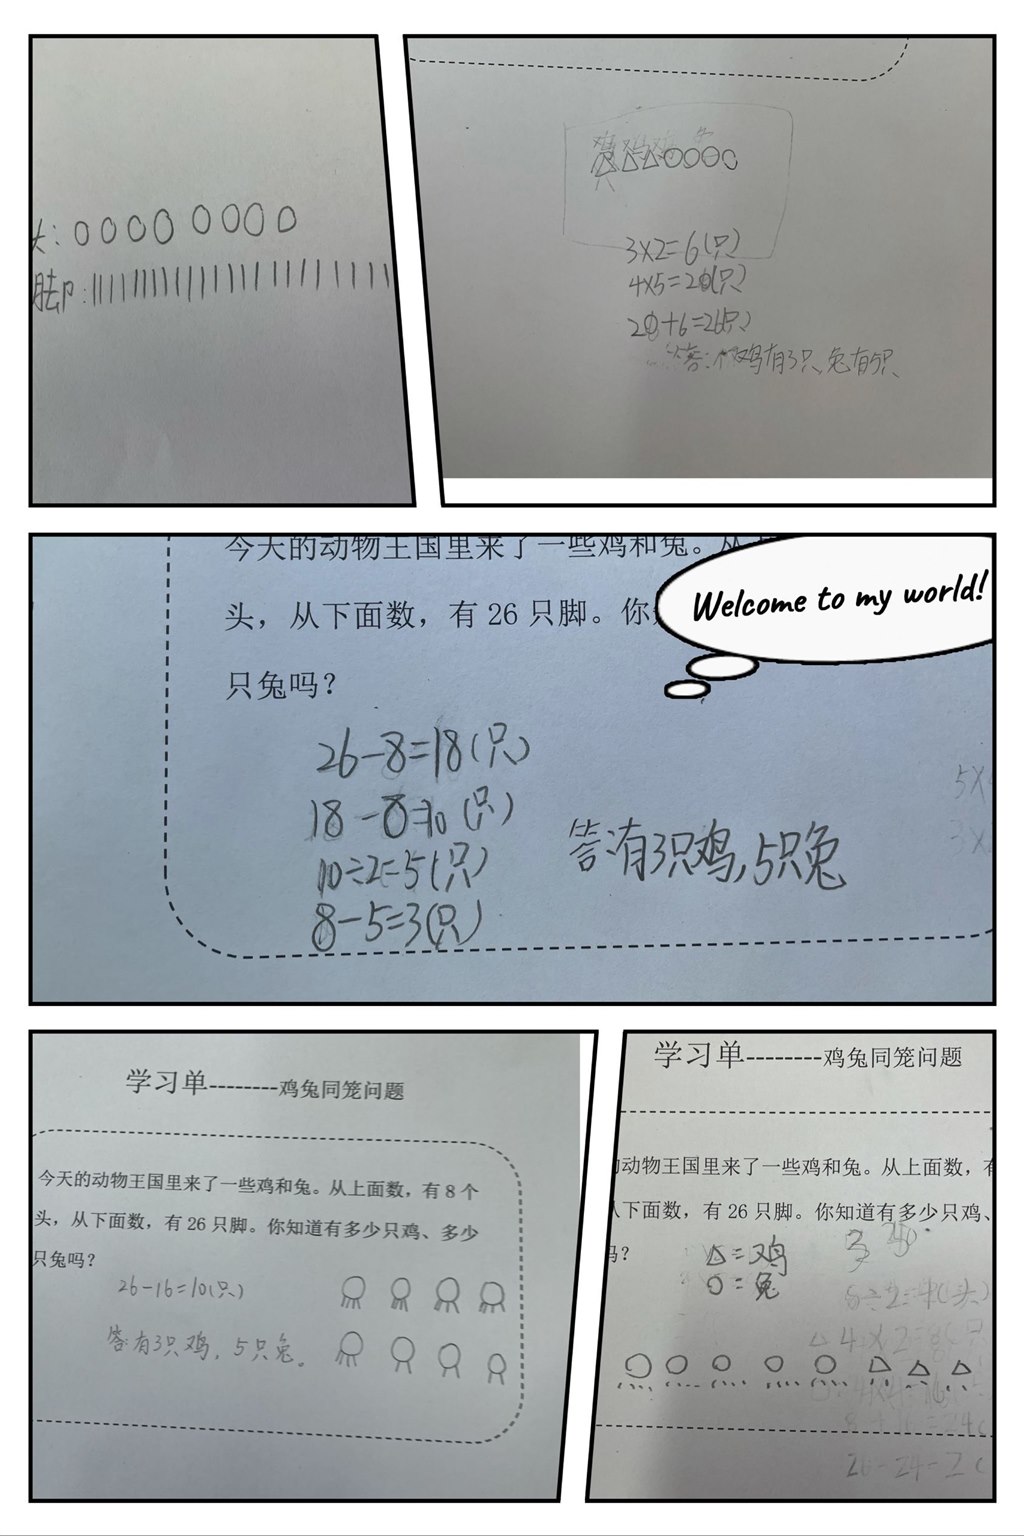 头:
脚:
3×2=6(只)
4×5=20(只)
20+6=26(只)
答:鸡有3只、兔有5只
今天的动物王国里来了一些鸡和兔。从
头，从下面数，有26只脚。你
只兔吗？
Welcome to my world!
26-8=18(只)
18-8=10(只)
10÷2=5(只)
8-5=3(只)
答:有3只鸡,5只兔
5×
3×
学习单--------鸡兔同笼问题
今天的动物王国里来了一些鸡和兔。从上面数，有8个
头，从下面数，有26只脚。你知道有多少只鸡、多少
只兔吗？
26-16=10(只)
答:有3只鸡，5只兔。
学习单--------鸡兔同笼问题
动物王国里来了一些鸡和兔。从上面数，有
从下面数，有26只脚。你知道有多少只鸡、
吗？
△=鸡
○=兔
4×2=8(只
4×4=16
8+16=24(
26-24=2(